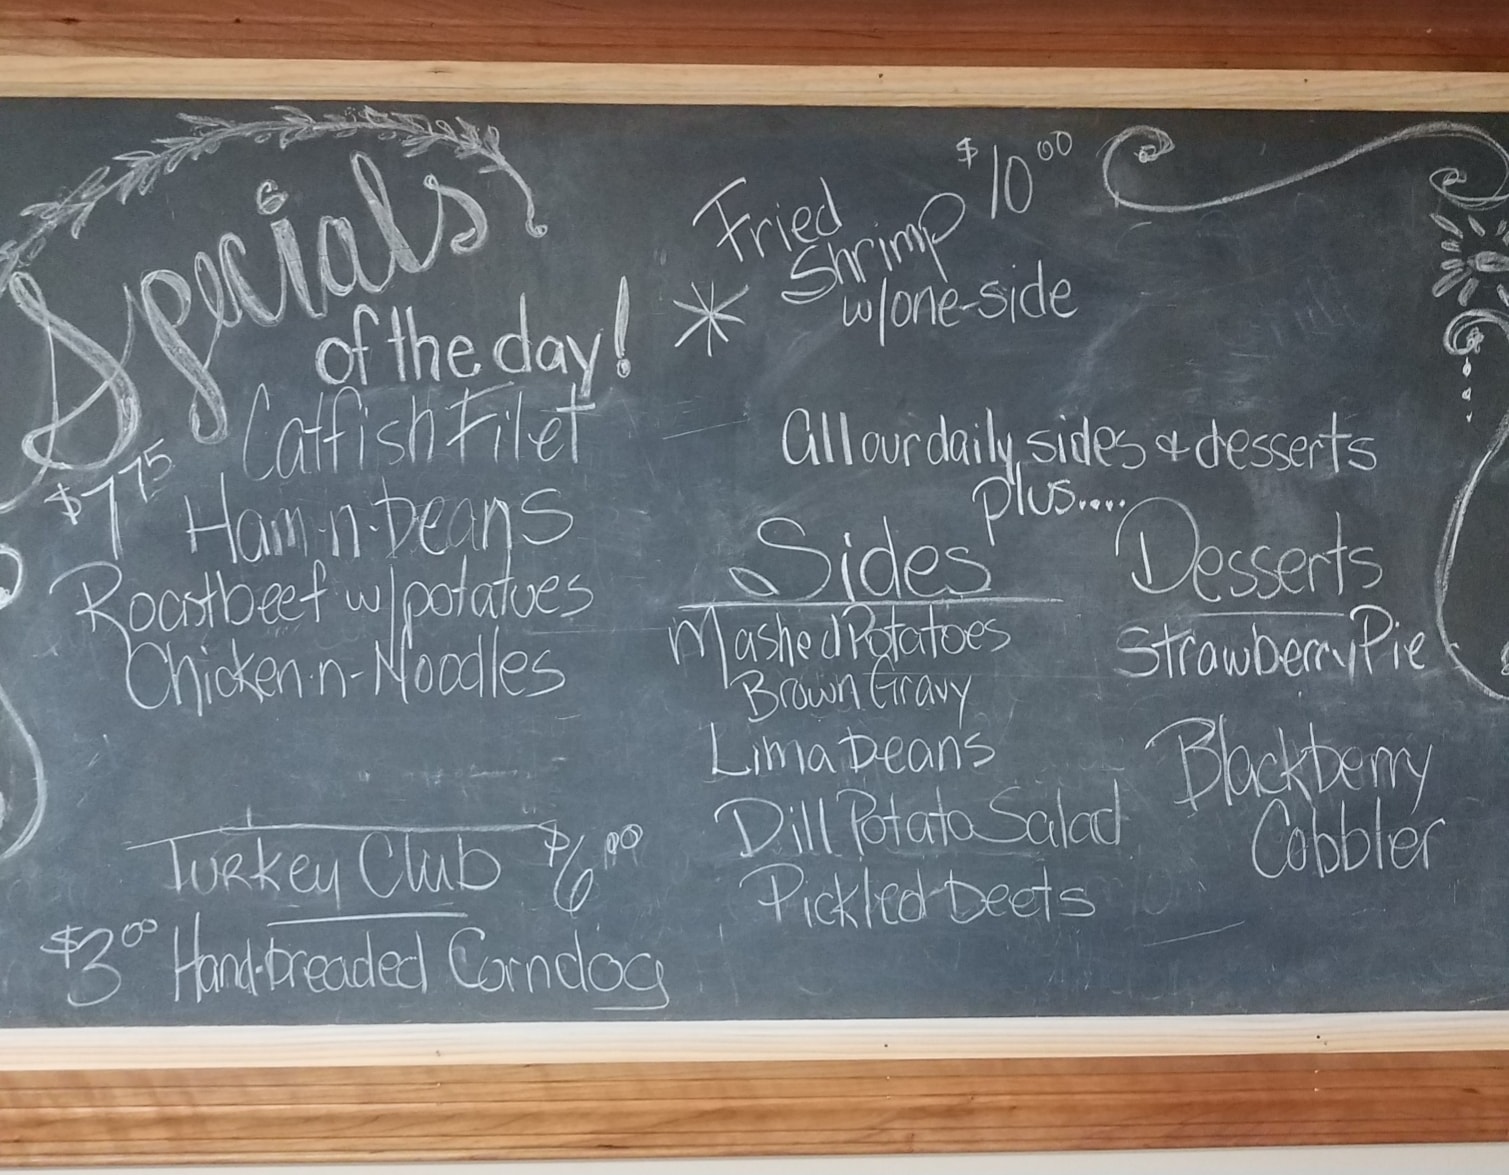 Specials
of the day!
Catfish Filet
$7.75 Ham-n-beans
Roastbeef w/potatoes
Chicken-n-Noodles
Turkey Club $6.00
$3.00 Hand-breaded Corndog
Fried $10.00
Shrimp
* w/one-side
All our daily sides & desserts
plus.....
Sides
Mashed Potatoes
Brown Gravy
Lima beans
Dill Potato Salad
Pickled beets
Desserts
Strawberry Pie
Blackberry
Cobbler